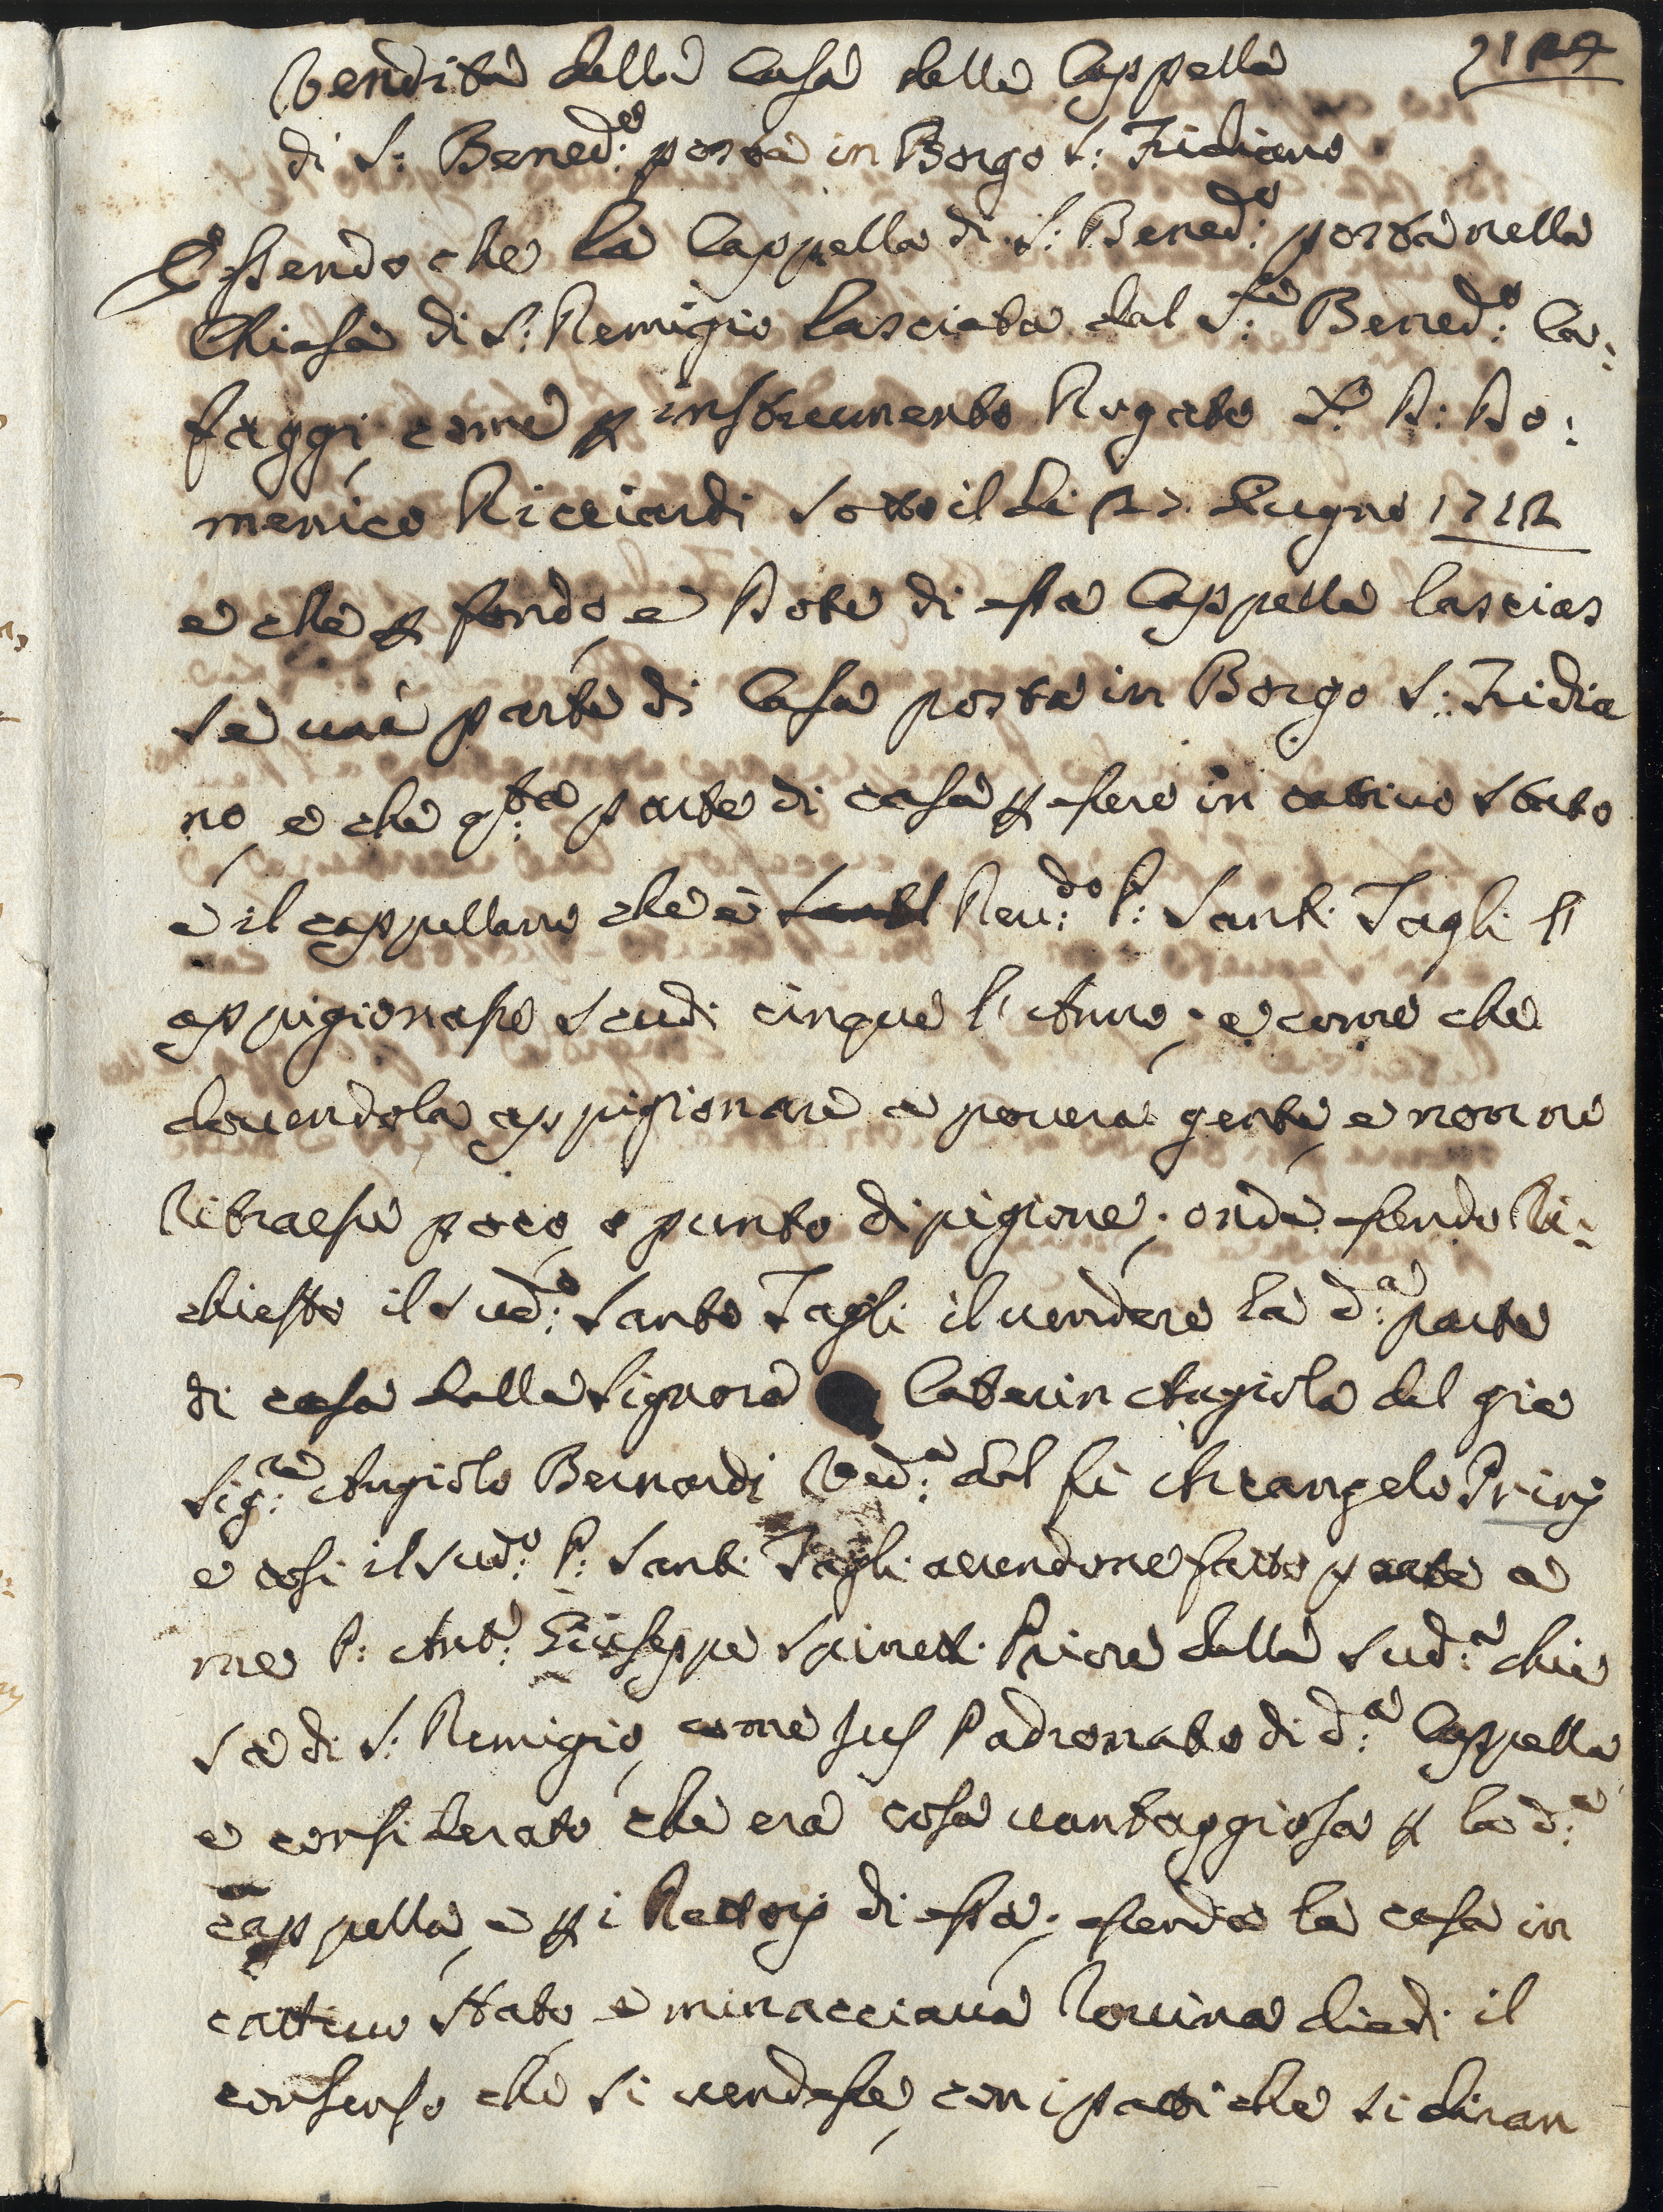 Vendita della Casa della Cappella
di S: Bened:o posta in Borgo S: Fridiano
Essendo che la Cappella di S: Bened:o posta nella
Chiesa di S: Remigio lasciata dal S:re Bened:o Ca:
faggi, come p instrumento Rogato P: Do:
menico Ricciardi sotto il di Giugno
e che p fondo, e Dote di essa Cappella lascias
se una parte di Casa posta in Borgo S: Fridia
no, e che q:ta parte di casa p essere in cativo stato
e il cappellano che è Reu:do P: Santi Tagli l'
appigionasse scudi cinque l'Anno; e come che
douendola appigionare a pouera gente, e non ne
Ritraesse poco, o punto di pigione; onde essendo Ri:
chiesto il Sud:o Santo Tagli il uendere la d:a parte
di casa dalla Signora Caterin Angiola del già
Sig:re Angiolo Bernardi Ved:a del fù Arcangelo Prinj
e cosi il Sud:o P: Santi Tagli auendone fatto parte a
me P: Ant:o Giuseppe Spinetti Priore della Sud:a chie
sa di S: Remigio, come Jus Padronato di d:a Cappella
e considerato che era cosa uantaggiosa p la d:a
cappella, e p i Rettorj di essa; essendo la casa in
cattiuo stato, e minacciaua Rouina diedi il
consenso che si uendesse, con i patti che si diran